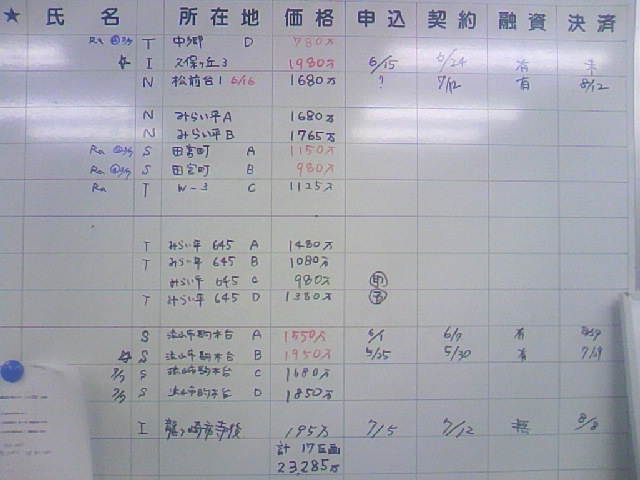 ★ 氏名 所在地 価格 申込 契約 融資 決済
Ra T 中郷 D 780万
I 久保ヶ丘3 1980万 6/15 6/24 有 未
N 松前台1 6/16 1680万 ? 7/12 有 8/12
N みらい平A 1680万
N みらい平B 1765万
Ra S 田宮町 A 1150万
Ra S 田宮町 B 980万
Ra T W-3 C 1125万
T みらい平 645 A 1480万
T みらい平 645 B 1080万
みらい平 645 C 980万
T みらい平 645 D 1380万
S 流山市駒木台 A 1550万 6/7 有
S 流山市駒木台 B 1950万 5/25 5/30 有 7/19
S 流山市駒木台 C 1680万
S 流山市駒木台 D 1850万
I 龍ヶ崎市寺後 195万 7/5 7/12 無 8/8
計 17区画
23,285万